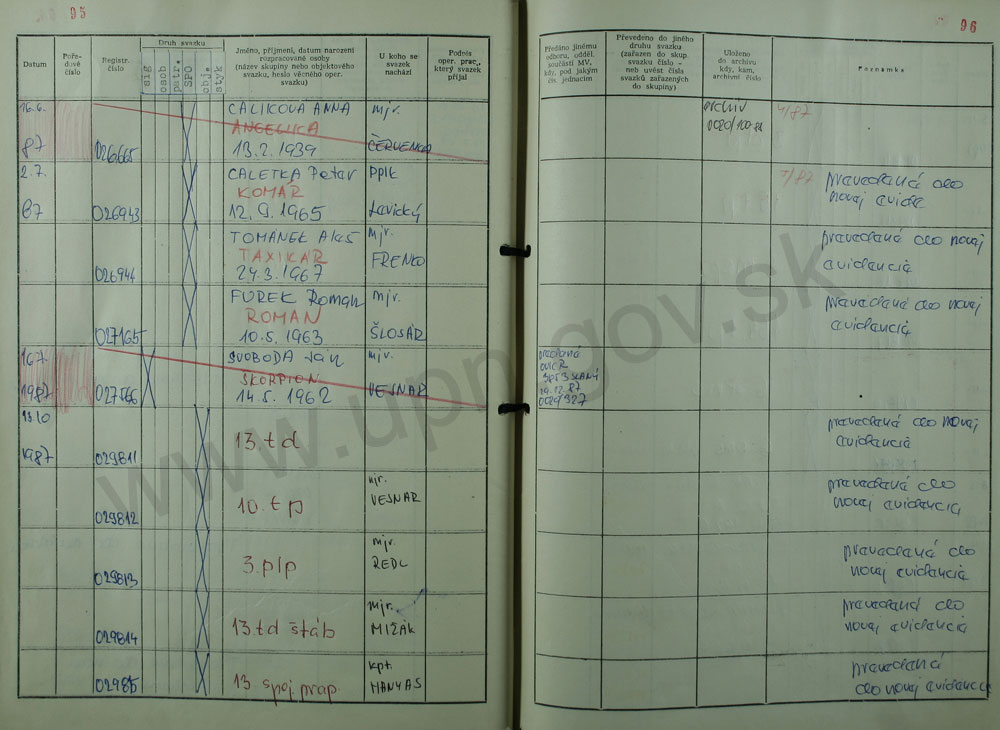 95
Datum
Pořa-
dové
číslo
Registr.
číslo
Druh svazku
sig
osob
patr.
SPO
obj.
styk
Jméno, příjmení, datum narození
rozpracované osoby
(název skupiny nebo objektového
svazku, heslo věcného oper.
svazku)
U koho se
svazek
nachází
Podpis
oper. prac.,
který svazek
přijal
16.6.
87
026665
CALIKOVÁ ANNA
ANGELIKA
13.2.1939
mjr.
ČERVENKA
2.7.
87
026943
CALETKA Peter
KOMÁR
12.9.1965
pplk
Lavický
026944
TOMÁNEK Aleš
TAXIKÁR
24.3.1967
mjr.
FRENKO
027165
FUREK Roman
ROMAN
10.5.1963
mjr.
ŠLOSÁR
16.7.
1987
027766
SVOBODA Ján
ŠKORPION
14.5.1962
mjr.
VESNAR
13.10
1987
029811
13.td
029812
10.tp
mjr.
VESNAR
029813
3.plp
mjr.
REDL
029814
13.td štáb
mjr.
MIŽÁK
02985
13 spoj prap
kpt.
MANYAS
96
Předáno jinému
odboru, odděl.
součásti MV,
kdy, pod jakým
čís. jednacím
Převedeno do jiného
druhu svazku
(zařazen do skup.
svazku číslo –
neb uvést čísla
svazků zařazených
do skupiny)
Uloženo
do archivu
kdy, kam,
archivní číslo
Poznámka
archiv
4/87
7/87
prevedená do
novej evide
prevedená do novej
evidencie
prevedená do novej
evidencie
19.12.87
prevedená do novej
evidencie
prevedená do
novej evidencie
prevedená do
novej evidencie
prevedená do
novej evidencie
prevedená
do novej evidencie
www.upn.gov.sk